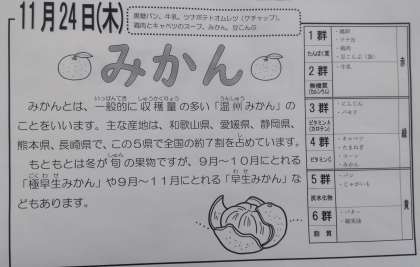 11月24日(木)
黒糖パン、牛乳、ツナポテトオムレツ(ケチャップ)、
鶏肉とキャベツのスープ、みかん、豆こんぶ
みかん
みかんとは、一般的に収穫量の多い「温州みかん」の
ことをいいます。主な産地は、和歌山県、愛媛県、静岡県、
熊本県、長崎県で、この5県で全国の約7割を占めています。
もともとは冬が旬の果物ですが、9月~10月にとれる
「極早生みかん」や9月~11月にとれる「早生みかん」な
どもあります。
1群
たんぱく質
・鶏卵
・ツナ缶
・鶏肉
2群
無機質
(カルシウム)
・牛乳
赤
3群
ビタミンA
(カロテン)
・にんじん
・パセリ
4群
ビタミンC
・キャベツ
・たまねぎ
・コーン
・みかん
緑
5群
炭水化物
・パン
・じゃがいも
6群
脂質
・バター
黄